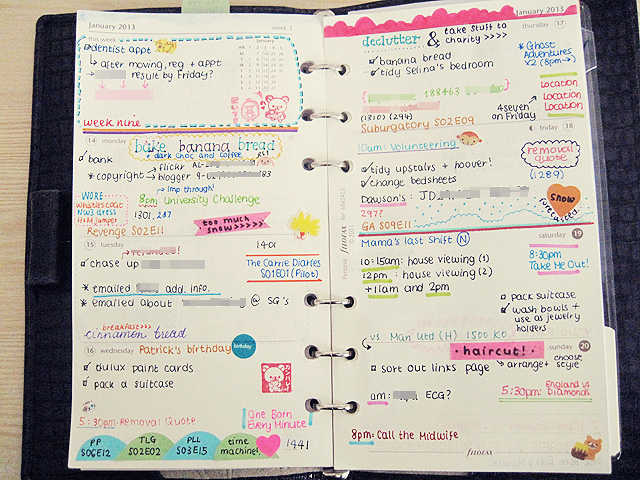 January 2013
week 3
this week
dentist appt
↳ after moving, reg + appt
result by Friday?
week nine
14 monday
bake banana bread
+ dark choc and coffee
bank
* copyright
flickr
blogger
↳ Imp through!
WORE
whistles coat
NW3 dress
H&M jumper
8pm University Challenge
1301, 287
too much
snow >>>>>
Revenge S02E11
15 tuesday
chase up
14-01
The Carrie Diaries
S01E01 (Pilot)
* emailed add. info.
* emailed about @ SG's
breakfast>>>
cinnamon bread
16 wednesday
Patrick's birthday
birthday
dulux paint cards
pack a suitcase
5:30pm: Removal Quote
One Born
Every Minute
PP
S06E12
TLG
S02E02
PLL
S03E15
time
machine!
1441
January 2013
thursday 17
declutter & take stuff to
charity >>>>
banana bread
tidy Selina's bedroom
* Ghost
Adventures
x2 (8pm→)
188463
Location
Location
Location
4seven
on Friday
(1310) (294)
Suburgatory S02E09
friday 18
10am: Volunteering
removal
quote
(1289)
tidy upstairs + hoover!
change bedsheets
Dawson's: JD
297?
GA S09E11
snow
forecasted
saturday 19
Mama's last Shift (N)
10:15am: house viewing (1)
12pm: house viewing (2)
+ 11am and 2pm
8:30pm
Take Me Out!
pack suitcase
wash bowls +
use as jewelry
holders
Personal filofax
© 2011
vs Man Utd (H) 1500 KO
sunday 20
haircut!
↳ arrange + choose
style
sort out links page
am: ECG?
5:30pm: England vs
Diamonds
8pm: Call the Midwife
filofax